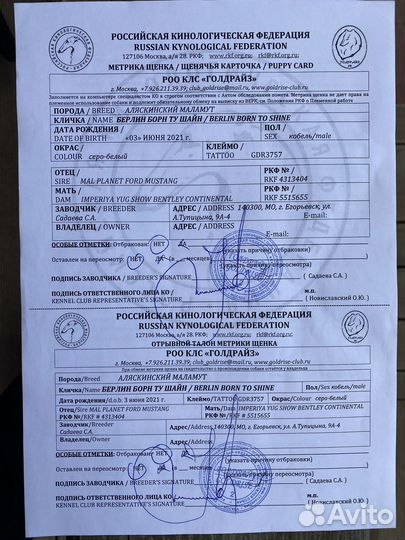 РОССИЙСКАЯ КИНОЛОГИЧЕСКАЯ ФЕДЕРАЦИЯ
RUSSIAN KYNOLOGICAL FEDERATION
127106 Москва, а/я 28. РКФ: www.rkf.org.ru, rkf@rkf.org.ru
МЕТРИКА ЩЕНКА / ЩЕНЯЧЬЯ КАРТОЧКА / PUPPY CARD
РОО КЛС «ГОЛДРАЙЗ»
г. Москва, +7.926.211.39.39; club_goldrise@mail.ru, www.goldrise-club.ru
Заполняется на компьютере специалистом КО в строгом соответствии с Актом обследования помета. Метрика щенка не дает права на
племенное использование собаки и подлежит обязательному обмену на выписку из ВЕРК, см. Положения РКФ о Племенной работе
ПОРОДА / BREED АЛЯСКИНСКИЙ МАЛАМУТ
КЛИЧКА / NAME БЕРЛИН БОРН ТУ ШАЙН / BERLIN BORN TO SHINE
ДАТА РОЖДЕНИЯ / ПОЛ /
DATE OF BIRTH «03» ИЮНЯ 2021 г. SEX кобель/male
ОКРАС / КЛЕЙМО /
COLOUR серо-белый TATTOO GDR3757
ОТЕЦ / РКФ № /
SIRE MAL PLANET FORD MUSTANG RKF 4313404
МАТЬ / РКФ № /
DAM IMPERIYA YUG SHOW BENTLEY CONTINENTAL RKF 5515655
ЗАВОДЧИК / BREEDER АДРЕС / ADDRESS 140300, МО, г. Егорьевск, ул.
Садаева С.А. А.Тупицына, 9А-4 E-mail:
ВЛАДЕЛЕЦ / OWNER АДРЕС / ADDRESS
E-mail:
ОСОБЫЕ ОТМЕТКИ: Отбракован: НЕТ ДА (указать причину отбраковки)
Оставлен на пересмотр: НЕТ ДА (в месяцев)
ПОДПИСЬ ЗАВОДЧИКА / BREEDER'S SIGNATURE ( Садаева С.А. )
ПОДПИСЬ ОТВЕТСТВЕННОГО ЛИЦА КО / м.п.
KENNEL CLUB REPRESENTATIVE'S SIGNATURE ( Новиславский О.Ю. )
РОССИЙСКАЯ КИНОЛОГИЧЕСКАЯ ФЕДЕРАЦИЯ
RUSSIAN KYNOLOGICAL FEDERATION
127106 Москва, а/я 28. РКФ: www.rkf.org.ru, rkf@rkf.org.ru
ОТРЫВНОЙ ТАЛОН МЕТРИКИ ЩЕНКА
РОО КЛС «ГОЛДРАЙЗ»
г. Москва, +7.926.211.39.39; club_goldrise@mail.ru, www.goldrise-club.ru
При обмене метрики щенка на свидетельство о происхождении собаки остаётся у владельца
Порода/Breed АЛЯСКИНСКИЙ МАЛАМУТ
Кличка/Name БЕРЛИН БОРН ТУ ШАЙН / BERLIN BORN TO SHINE Пол/Sex кобель/male
Дата рождения/d.o.b. 3 июня 2021 г. Клеймо/TATTOO GDR3757 Окрас/Colour серо-белый
Отец/Sire MAL PLANET FORD MUSTANG Мать/Dam IMPERIYA YUG SHOW BENTLEY CONTINENTAL
РКФ№/RKF # 4313404 РКФ№/RKF # 5515655
Заводчик/Breeder Адрес/Address 140300, МО, г. Егорьевск, ул. А.Тупицына, 9А-4
Садаева С.А.
Владелец/Owner Адрес/Address
ОСОБЫЕ ОТМЕТКИ: Отбракован: НЕТ ДА (указать причину отбраковки)
Оставлен на пересмотр: НЕТ ДА (в месяцев)
ПОДПИСЬ ЗАВОДЧИКА / BREEDER'S SIGNATURE ( Садаева С.А. )
ПОДПИСЬ ОТВЕТСТВЕННОГО ЛИЦА КО / м.п.
KENNEL CLUB REPRESENTATIVE'S SIGNATURE ( Новиславский О.Ю. )
Avito